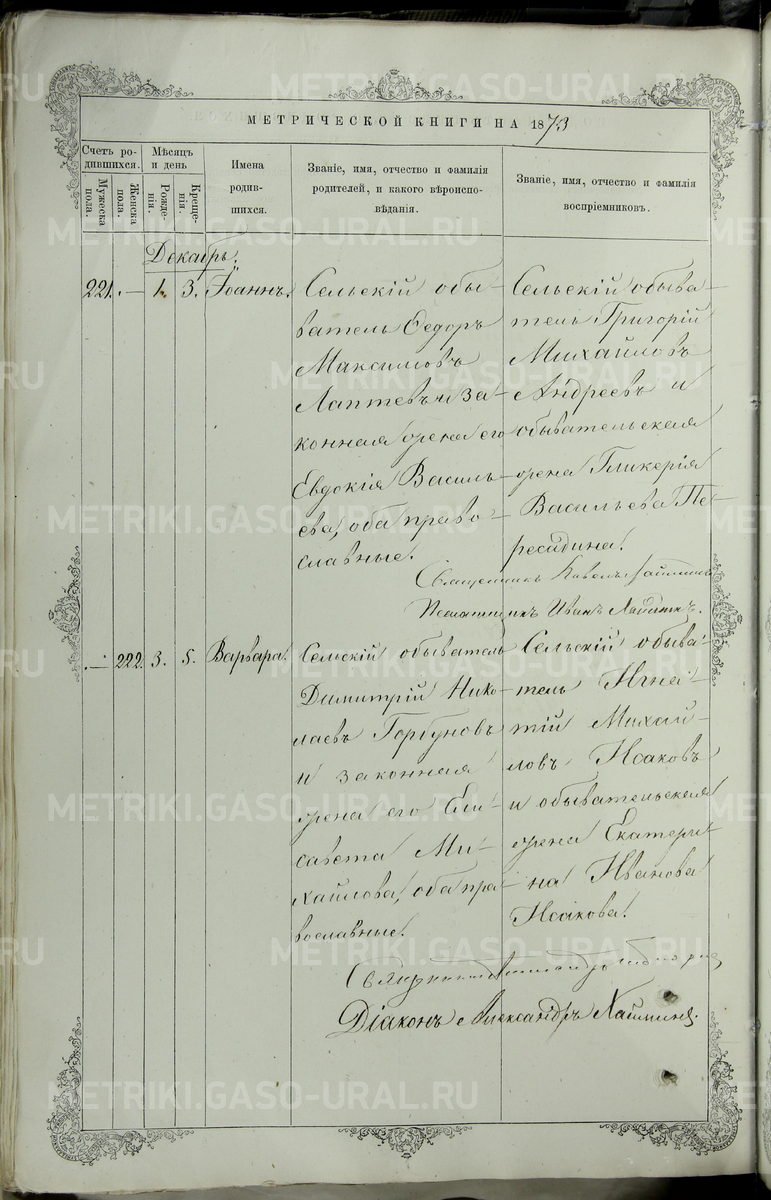 МЕТРИЧЕСКОЙ КНИГИ НА 1873
Счетъ родившихся.
Мужеска пола.
Женска пола.
Мѣсяцъ и день
Рожденія.
Крещенія.
Имена родившихся.
Званіе, имя, отчество и фамилія родителей, и какого вѣроисповѣданія.
Званіе, имя, отчество и фамилія воспріемниковъ.
Декабрь.
221. — 1. 3. Іоаннъ.
Сельскій обы-
ватель Ѳедоръ
Максимовъ
Лаптевъ и за-
конная жена его
Евдокія Василь-
ева, оба право-
славные.
Сельскій обыва-
тель Григорій
Михайловъ
Андреевъ и
обывательская
жена Гликерія
Васильева Пе-
ресадина.
Священникъ Павелъ
Псаломщикъ Иванъ
— 222. 3. 5. Варвара.
Сельскій обыватель
Димитрій Нико-
лаевъ Горбуновъ
и законная
жена его Ели-
савета Ми-
хайлова, оба пра-
вославные.
Сельскій обыва-
тель Игна-
тій Михай-
ловъ Исаковъ
и обывательская
жена Екатери-
на Иванова
Исакова.
Діаконъ Александръ
METRIKI.GASO-URAL.RU